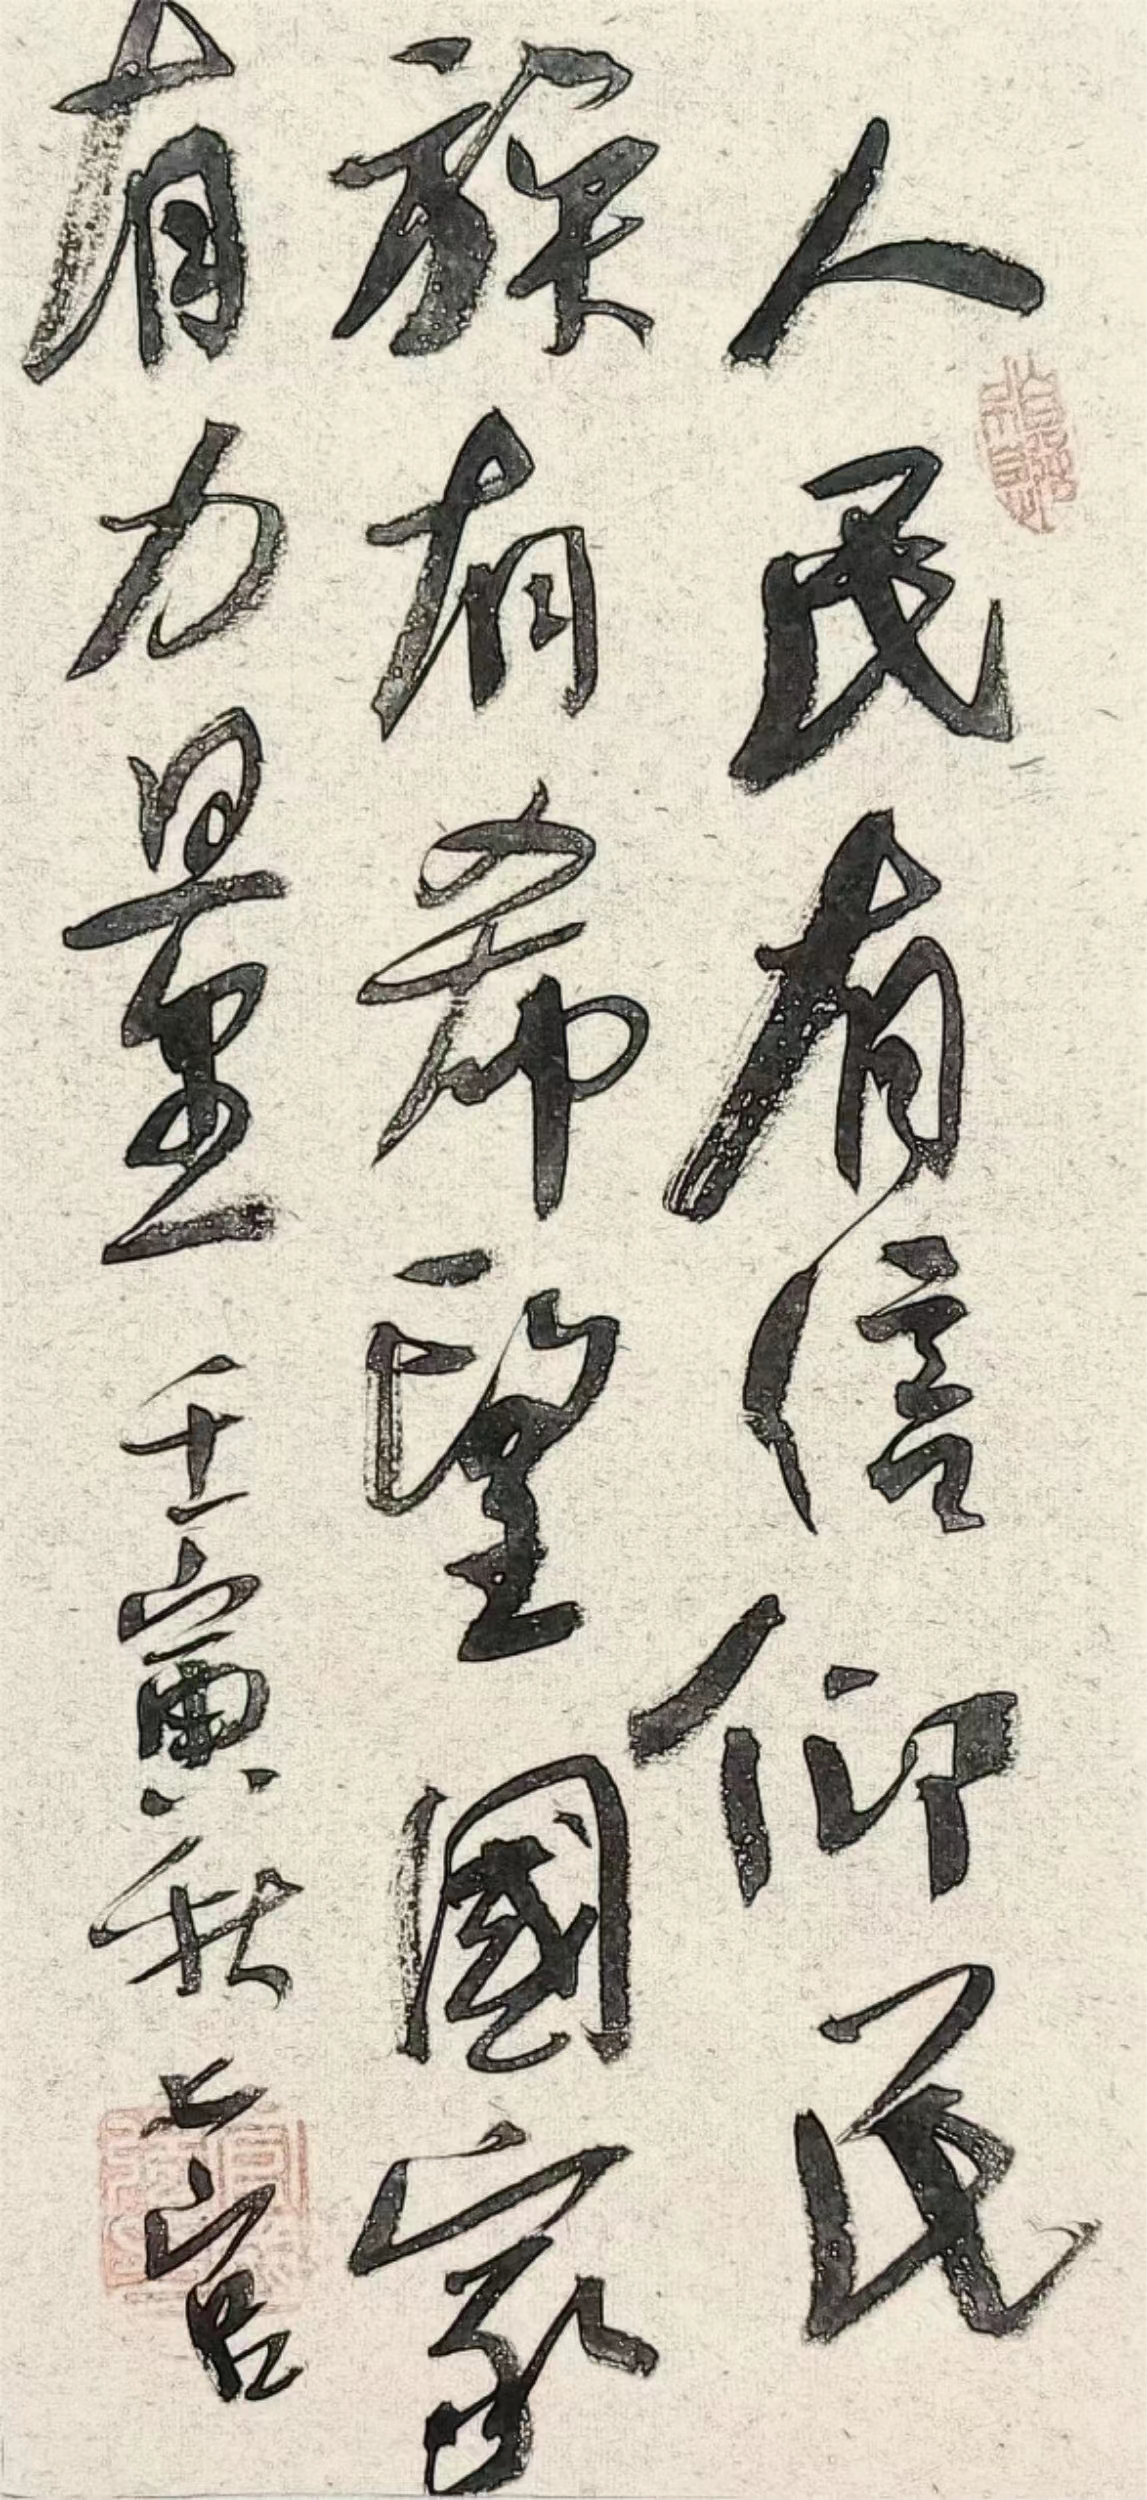 人民有信仰民
族有希望國家
有力量 壬寅秋上官